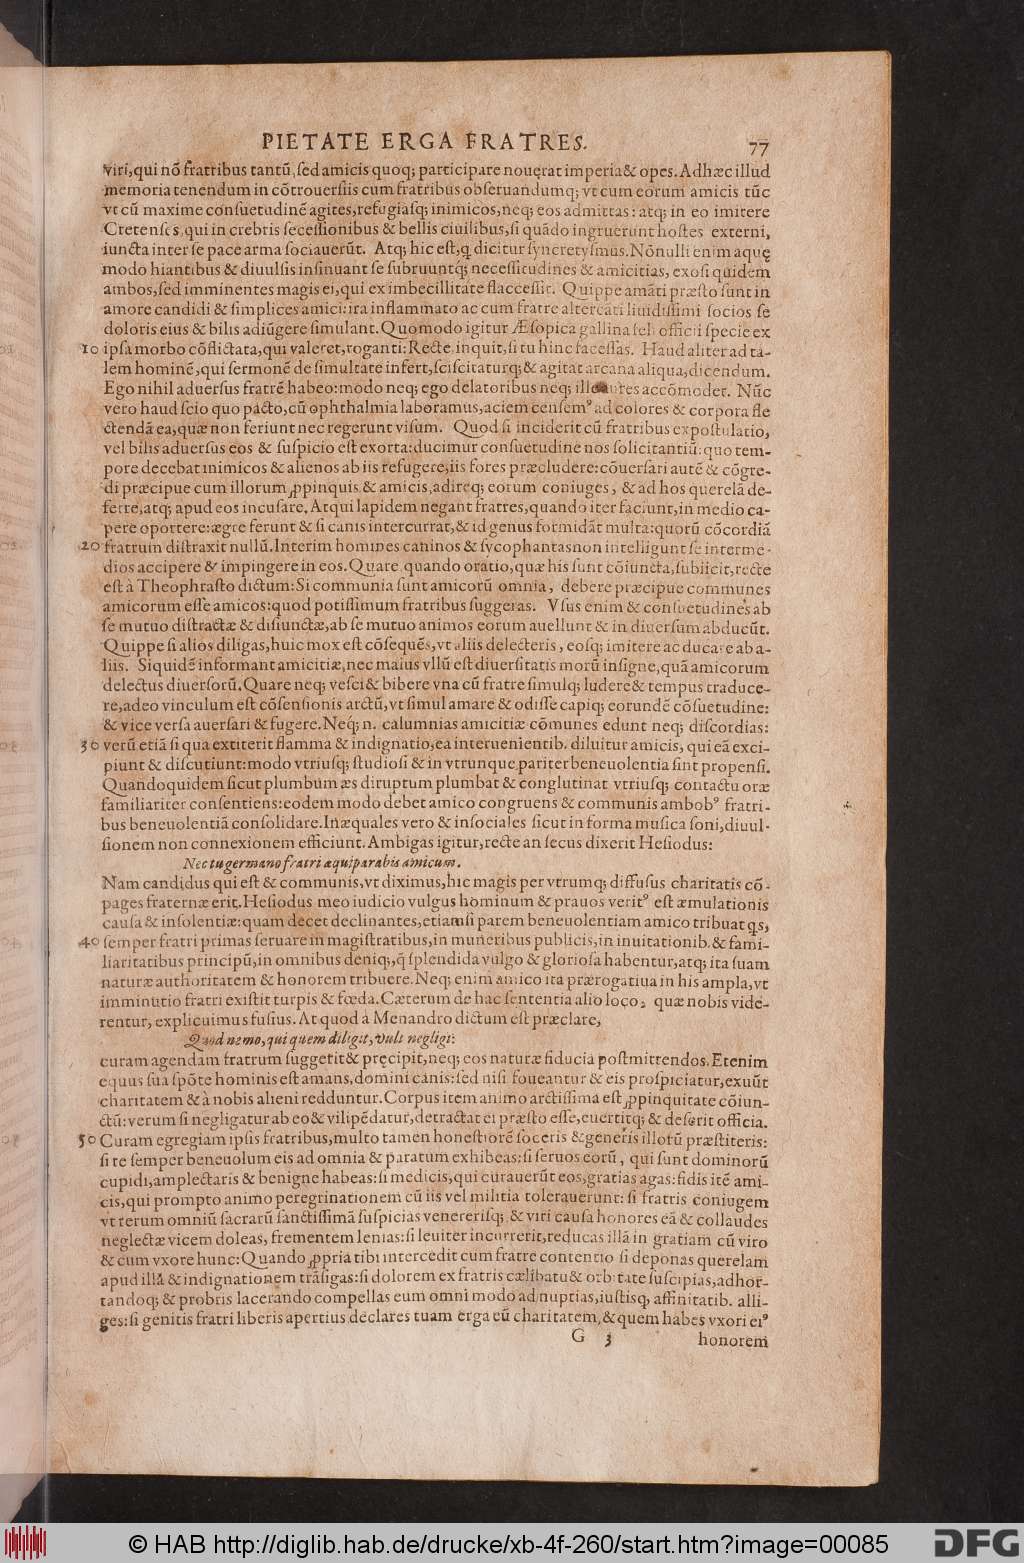 PIETATE ERGA FRATRES. 77
viri, qui nō fratribus tantū, ſed amicis quoq; participare nouęrat imperia & opes. Ad hæc illud
memoria tenendum in cōtrouerſiis cum fratribus obſeruandumq;, vt cum eorum amicis tūc
vt cū maxime conſuetudinē agites, refugiaſq; inimicos, neq; eos admittas: atq; in eo imitere
Cretenſes, qui in crebris ſeceſſionibus & bellis ciuilibus, ſi quādo ingruerunt hoſtes externi,
iuncta inter ſe pace arma ſociauerūt. Atq; hic eſt, q dicitur ſyncretyſmus. Nōnulli enim aquę
modo hiantibus & diuulſis inſinuant ſe ſubruuntq; neceſſitudines & amicitias, exoſi quidem
ambos, ſed imminentes magis ei, qui ex imbecillitate flacceſſit. Quippe amāti præſto ſunt in
amore candidi & ſimplices amici: ira inflammato ac cum fratre altercāti liuidiſſimi ſocios ſe
doloris eius & bilis adiūgere ſimulant. Quomodo igitur Æſopica gallina feli officii ſpecie ex
10 ipſa morbo cōflictata, qui valeret, roganti: Recte, inquit, ſi tu hinc faceſſas. Haud aliter ad ta-
lem hominē, qui ſermonē de ſimultate infert, ſciſcitaturq; & agitat arcana aliqua, dicendum.
Ego nihil aduerſus fratrē habeo: modo neq; ego delatoribus neq; ille aures accōmodet. Nūc
vero haud ſcio quo pacto, cū ophthalmia laboramus, aciem cenſemꝰ ad colores & corpora fle
ctendā ea, quæ non feriunt nec regerunt viſum. Quod ſi inciderit cū fratribus expoſtulatio,
vel bilis aduerſus eos & ſuſpicio eſt exorta: ducimur conſuetudine nos ſolicitantiū: quo tem-
pore decebat inimicos & alienos ab iis refugere, iis fores præcludere: cōuerſari autē & cōgre-
di præcipue cum illorum ꝓpinquis & amicis, adireq; eorum coniuges, & ad hos querelā de-
ferre, atq; apud eos incuſare. Atqui lapidem negant fratres, quando iter faciunt, in medio ca-
pere oportere: ægre ferunt & ſi canis intercurrat, & id genus formidāt multa: quorū cōcordiā
20 fratrum diſtraxit nullū. Interim homines caninos & ſycophantas non intelligunt ſe interme-
dios accipere & impingere in eos. Quare, quando oratio, quæ his ſunt cōiuncta, ſubiicit, recte
eſt à Theophraſto dictum: Si communia ſunt amicorū omnia, debere præcipue communes
amicorum eſſe amicos: quod potiſſimum fratribus ſuggeras. Vſus enim & conſuetudines ab
ſe mutuo diſtractæ & diſiunctæ, ab ſe mutuo animos eorum auellunt & in diuerſum abducūt.
Quippe ſi alios diligas, huic mox eſt cōſequēs, vt aliis delecteris, eoſq; imitere ac ducare ab a-
liis. Siquidē informant amicitiæ, nec maius vllū eſt diuerſitatis morū inſigne, quā amicorum
delectus diuerſorū. Quare neq; veſci & bibere vna cū fratre ſimulq; ludere & tempus traduce-
re, adeo vinculum eſt cōſenſionis arctū, vt ſimul amare & odiſſe capiq; eorundē cōſuetudine:
& vice verſa auerſari & fugere. Neq; n. calumnias amicitiæ cōmunes edunt neq; diſcordias:
30 verū etiā ſi qua extiterit flamma & indignatio, ea interuenientib. diluitur amicis, qui eā exci-
piunt & diſcutiunt: modo vtriuſq; ſtudioſi & in vtrunque pariter beneuolentia ſint propenſi.
Quandoquidem ſicut plumbum æs diruptum plumbat & conglutinat vtriuſq; contactu oræ
familiariter conſentiens: eodem modo debet amico congruens & communis ambobꝰ fratri-
bus beneuolentiā conſolidare. Inæquales vero & inſociales ſicut in forma muſica ſoni, diuul-
ſionem non connexionem efficiunt. Ambigas igitur, recte an ſecus dixerit Heſiodus:
Nec tu germano fratri æquiparabis amicum.
Nam candidus qui eſt & communis, vt diximus, hic magis per vtrumq; diffuſus charitatis cō-
pages fraternæ erit. Heſiodus meo iudicio vulgus hominum & prauos veritꝰ eſt æmulationis
cauſa & inſolentiæ: quam decet declinantes, etiamſi parem beneuolentiam amico tribuat qs,
40 ſemper fratri primas ſeruare in magiſtratibus, in muneribus publicis, in inuitationib. & fami-
liaritatibus principū, in omnibus deniq;, q̄ ſplendida vulgo & glorioſa habentur, atq; ita ſuam
naturæ authoritatem & honorem tribuere. Neq; enim amico ita prærogatiua in his ampla, vt
imminutio fratri exiſtit turpis & fœda. Cæterum de hac ſententia alio loco, quæ nobis vide-
rentur, explicuimus fuſius. At quod à Menandro dictum eſt præclare,
Quod nemo, qui quem diligit, vult negligi:
curam agendam fratrum ſuggerit & pręcipit, neq; eos naturæ fiducia poſtmittendos. Etenim
equus ſua ſpōte hominis eſt amans, domini canis: ſed niſi foueantur & eis proſpiciatur, exuūt
charitatem & à nobis alieni redduntur. Corpus item animo arctiſſima eſt ꝓpinquitate cōiun-
ctū: verum ſi negligatur ab eo & vilipēdatur, detractat ei præſto eſſe, euertitq; & deſerit officia.
50 Curam egregiam ipſis fratribus, multo tamen honeſtiorē ſoceris & generis illorū præſtiteris:
ſi te ſemper beneuolum eis ad omnia & paratum exhibeas: ſi ſeruos eorū, qui ſunt dominorū
cupidi, amplectaris & benigne habeas: ſi medicis, qui curauerūt eos, gratias agas: fidis itē ami-
cis, qui prompto animo peregrinationem cū iis vel militia tolerauerunt: ſi fratris coniugem
vt rerum omniū ſacrarū ſanctiſſimā ſuſpicias venereriſq; & viri cauſa honores eā & collaudes
neglectæ vicem doleas, frementem lenias: ſi leuiter incurrerit, reducas illā in gratiam cū viro
& cum vxore hunc: Quando ꝓpria tibi intercedit cum fratre contentio ſi deponas querelam
apud illā & indignationem trāſigas: ſi dolorem ex fratris cælibatu & orbitate ſuſcipias, adhor-
tandoq; & probris lacerando compellas eum omni modo ad nuptias, iuſtisq; affinitatib. alli-
ges: ſi genitis fratri liberis apertius declares tuam erga eū charitatem, & quem habes vxori eiꝰ
G 3 honorem
© HAB http://diglib.hab.de/drucke/xb-4f-260/start.htm?image=00085
DFG